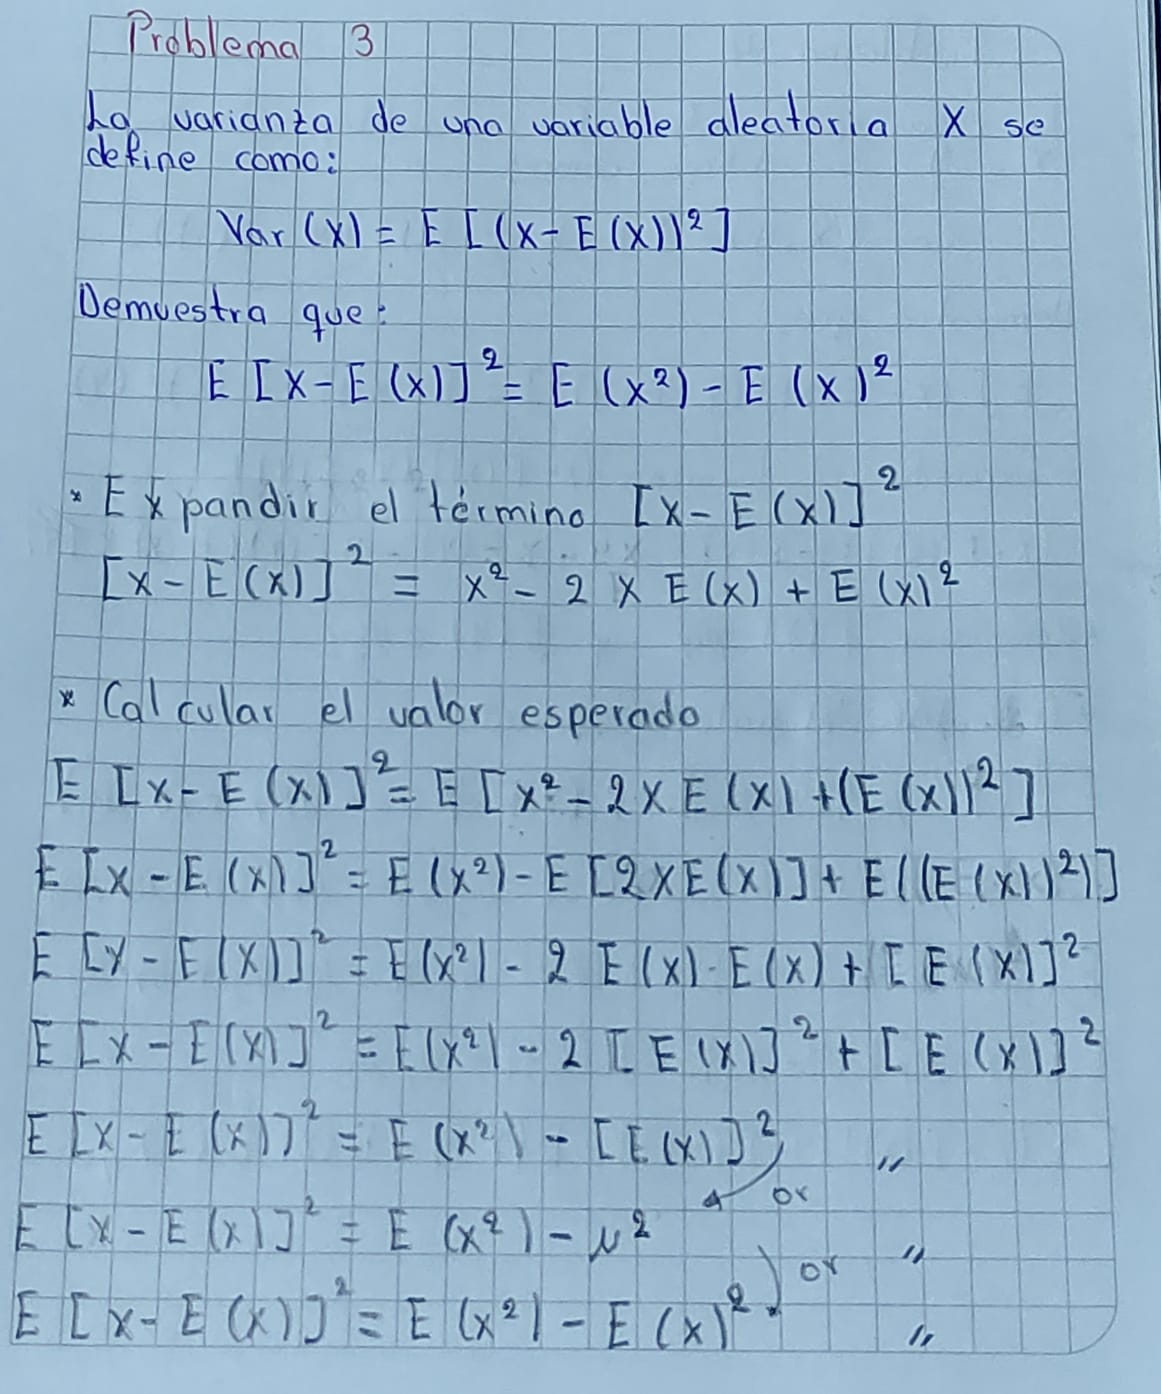 Problema 3
La varianza de una variable aleatoria X se
define como:
Var (X) = E [(X- E (X))²]
Demuestra que:
E [X-E (X)]² = E (X²) - E (X)²
* Expandir el término [X- E (X)]²
[X - E (X)]² = X² - 2 X E (X) + E (X)²
* Calcular el valor esperado
E [X- E (X)]² = E [X² - 2 X E (X) + (E (X))²]
E [X - E (X)]² = E (X²) - E [2 X E (X)] + E ((E (X))²)]
E [X - E (X)]² = E (X²) - 2 E (X) · E (X) + [E (X)]²
E [X - E (X)]² = E (X²) - 2 [E (X)]² + [E (X)]²
E [X - E (X)]² = E (X²) - [E (X)]² //
or
E [X - E (X)]² = E (X²) - μ² //
or
E [X- E (X)]² = E (X²) - E (X)² //